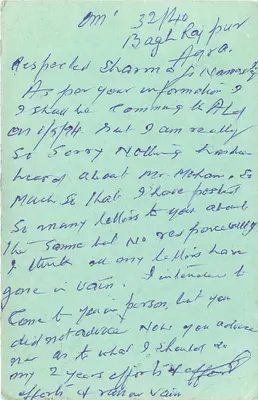 OM'
32/40
Bagh Raj pur
Agra.
Respected Sharma Ji Namastey
As par your information I
I shall be Comming to Ald
on 1/5/94. But I am really
So Sorry Nothing has been
heard about Mr. Mohan. So
Much So that I have posted
So many letters to you about
the Same but No responce
I think all my letters have
gone in vain. I intended to
Come to you in person but you
did not advice Now you advice
me as to what I should do
my 2 years efforts
efforts of vain